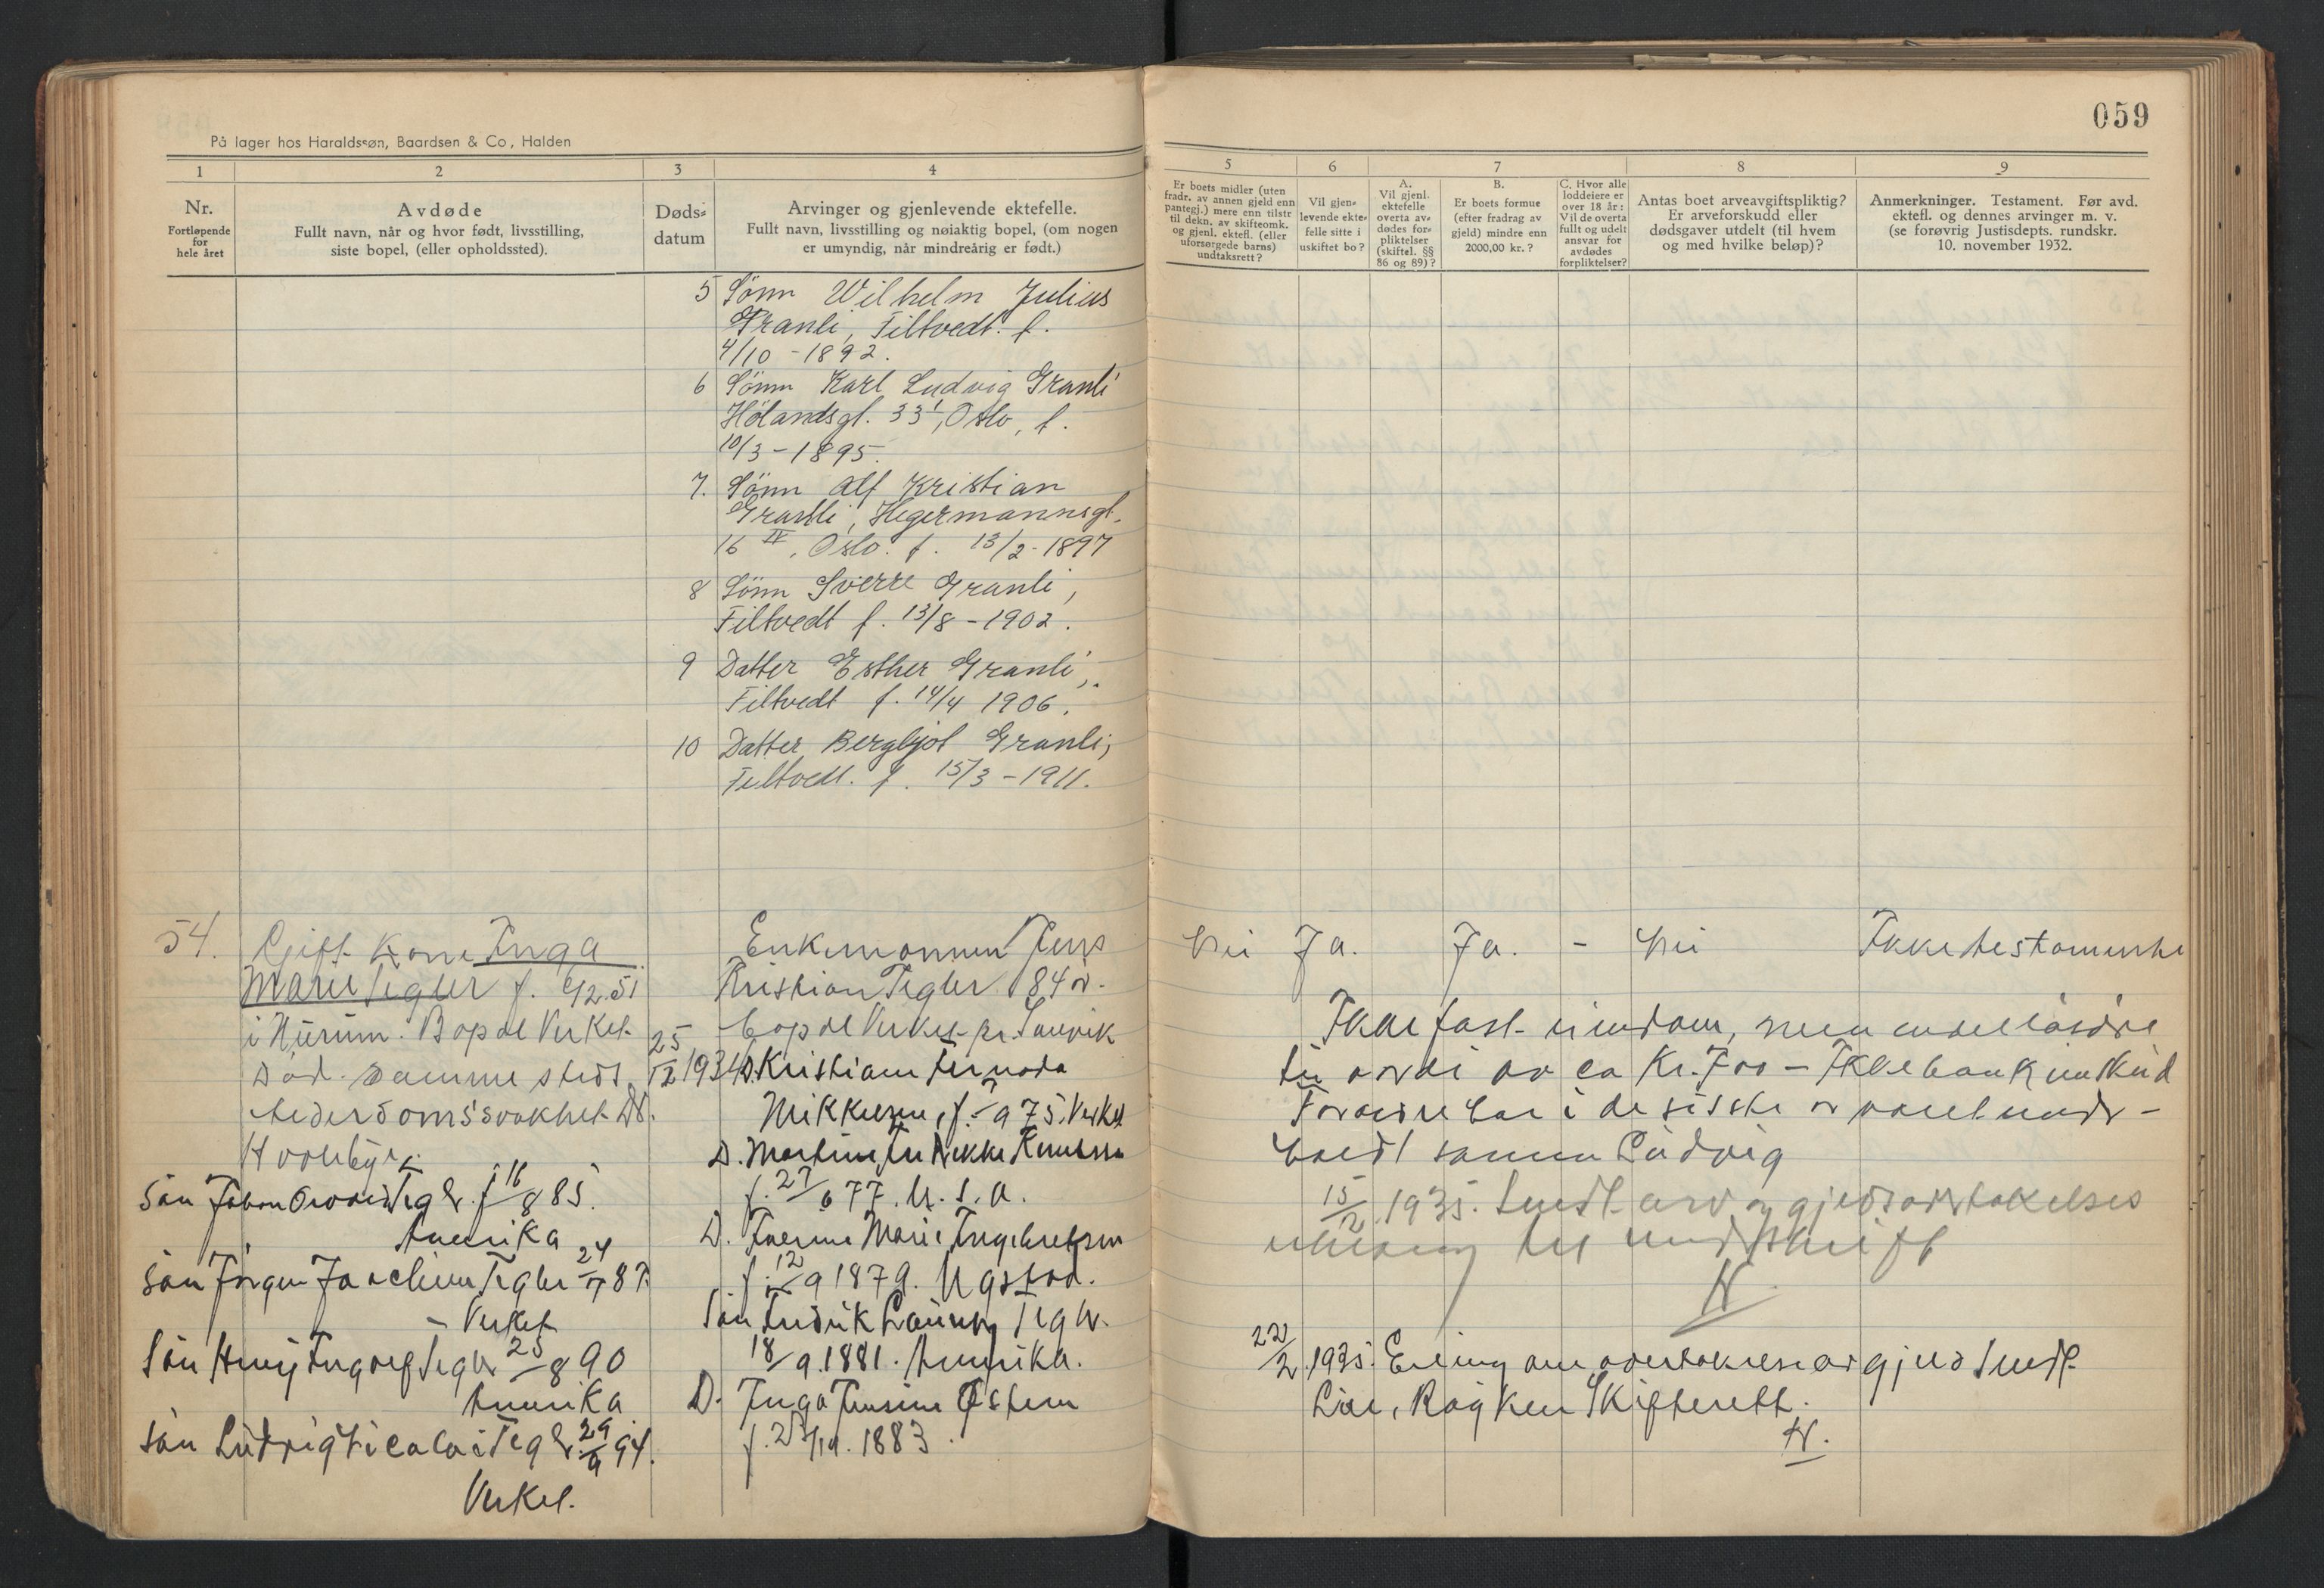 059
På lager hos Haraldssøn, Baardsen & Co, Halden
1 2 3 4
Nr.
Fortløpende
for
hele året
Avdøde
Fullt navn, når og hvor født, livsstilling,
siste bopel, (eller opholdssted).
Døds-
datum
Arvinger og gjenlevende ektefelle.
Fullt navn, livsstilling og nøiaktig bopel, (om nogen
er umyndig, når mindreårig er født.)
5 Sönn Wilhelm Julius
Granli, Filtvedt. f.
4/10 - 1892.
6 Sönn Karl Ludvig Granli
Hölandsgt. 33 I, Oslo, f.
10/3 - 1895.
7. Sönn Alf Kristian
Granli, Hegermannsgt.
16 IV, Oslo. f. 13/2 - 1897
8 Sönn Sverre Granli,
Filtvedt f. 13/8 - 1902.
9 Datter Esther Granli,
Filtvedt f. 14/4 1906.
10 Datter Bergljot Granli,
Filtvedt. f. 15/3 - 1911.
54. Gift Kone Inga
Marie Tegler f.
i Hurum. Bopæl Verket
Död samme steds
Alderdomssvakhet Dr.
25/12 1934
Enkemannen Jens
Kristian Tegler 84 år.
bopæl Verket pr. Sanvik
D. Kristiane
Mikkelsen, f. 75. Verket
D. Martine Knutsen
f. 27/6 77. U.S.A.
D. Marie Ingebretsen
f. 12/9 1879.
Sön Fredrik Tegler
18/9 1881. Amerika.
D. Inga Jensine Østern
f. 1883.
Sön Johan Tegler f. 16/8 85.
Amerika
Sön Jörgen Joachim Tegler 24/ 87
- Verket
Sön Tegler 25/8 90
Amerika
Sön Ludvig Nicolai Tegler 29/9 94.
Verket.
5 6 7 8 9
Er boets midler (uten
fradr. av annen gjeld enn
pantegj.) mere enn tilstr
til dekn. av skifteomk.
og gjenl. ektefl. (eller
uforsørgede barns)
undtaksrett?
Vil gjen-
levende ekte-
felle sitte i
uskiftet bo?
A.
Vil gjenl.
ektefelle
overta av-
dødes for-
pliktelser
(skiftel. §§
86 og 89)?
B.
Er boets formue
(efter fradrag av
gjeld) mindre enn
2000,00 kr.?
C. Hvor alle
loddeiere er
over 18 år:
Vil de overta
fullt og udelt
ansvar for
avdødes
forpliktelser?
Antas boet arveavgiftspliktig?
Er arveforskudd eller
dødsgaver utdelt (til hvem
og med hvilke beløp)?
Anmerkninger. Testament. Før avd.
ektefl. og dennes arvinger m. v.
(se forøvrig Justisdepts. rundskr.
10. november 1932.
Nei Ja. Ja. - Nei Ikke testamente
Ikke fast eiendom, men endel lösöre
til verdi av ca Kr. 700 - Ikke bankinnskud
Foreldre har i de siste år været under-
holdt sönnen Ludvig
15/2 1935. Sendt arv og gjeldsovertakelses
erklæring til underskrift
N.
22/2 1935. Erklæring om overtakelse av gjeld sendt
Lier, Röyken Skifterett.
N.